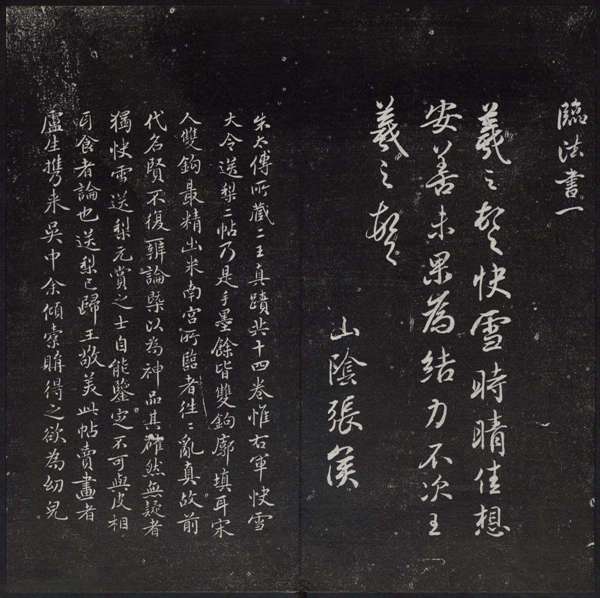 臨法書一
羲之頓首快雪時晴佳想
安善未果為結力不次王
羲之頓首
山陰張侯
朱太傅所藏二王真蹟共十四卷惟右軍快雪
大令送梨二帖乃是手墨餘皆雙鉤廓填耳宋
人雙鉤最精出米南宮所臨者往〻亂真故前
代名賢不復辨論槩以為神品其確然無疑者
獨快雪送梨元賞之士自能鑒定不可與皮相
耳食者論也送梨已歸王敬美此帖賣畫者
盧生攜来吳中余傾橐購得之欲為幼兒